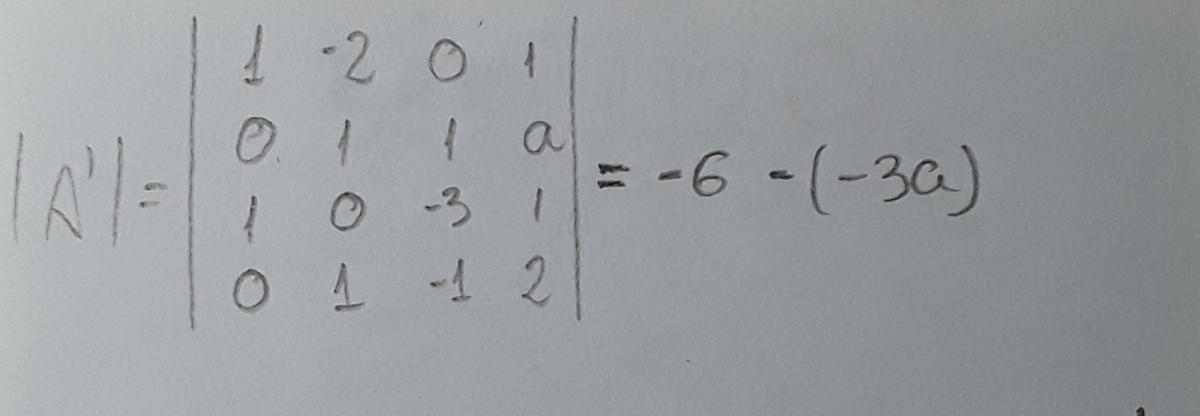 1 -2 0 1
0 1 1 a
|A'| = = -6 - (-3a)
1 0 -3 1
0 1 -1 2